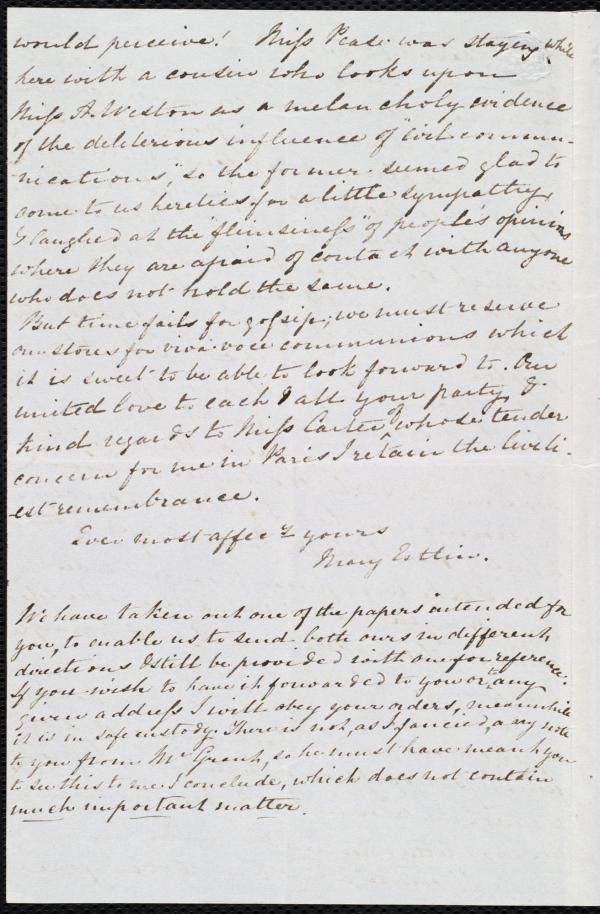 would perceive! Miss Pease was staying while
here with a cousin who looks upon
Miss A. Weston as a melancholy evidence
of the deleterious influence of "evil commun-
nications," so the former seemed glad to
come to us heretics for a little sympathy.
I laughed at the "flimsiness" of people's opinions
where they are afraid of contact with anyone
who does not hold the same.
But time fails for gossip; we must reserve
our stores for viva voce communions which
it is sweet to be able to look forward to. Our
united love to each & all your party, &
kind regards to Miss Carter, of whose tender
concern for me in Paris I retain the liveli-
-est remembrance.
Ever most affecy yours
Mary Estlin.
We have taken out one of the papers intended for
you, to enable us to send both ours in different
directions & still be provided with one for reference.
If you wish to have it forwarded to you or to any
given address I will obey your orders, meanwhile
it is in safe custody. There is not, as I fancied, any note
to you from Mr Grant, so he must have meant you
to see this to me I conclude, which does not contain
much important matter.